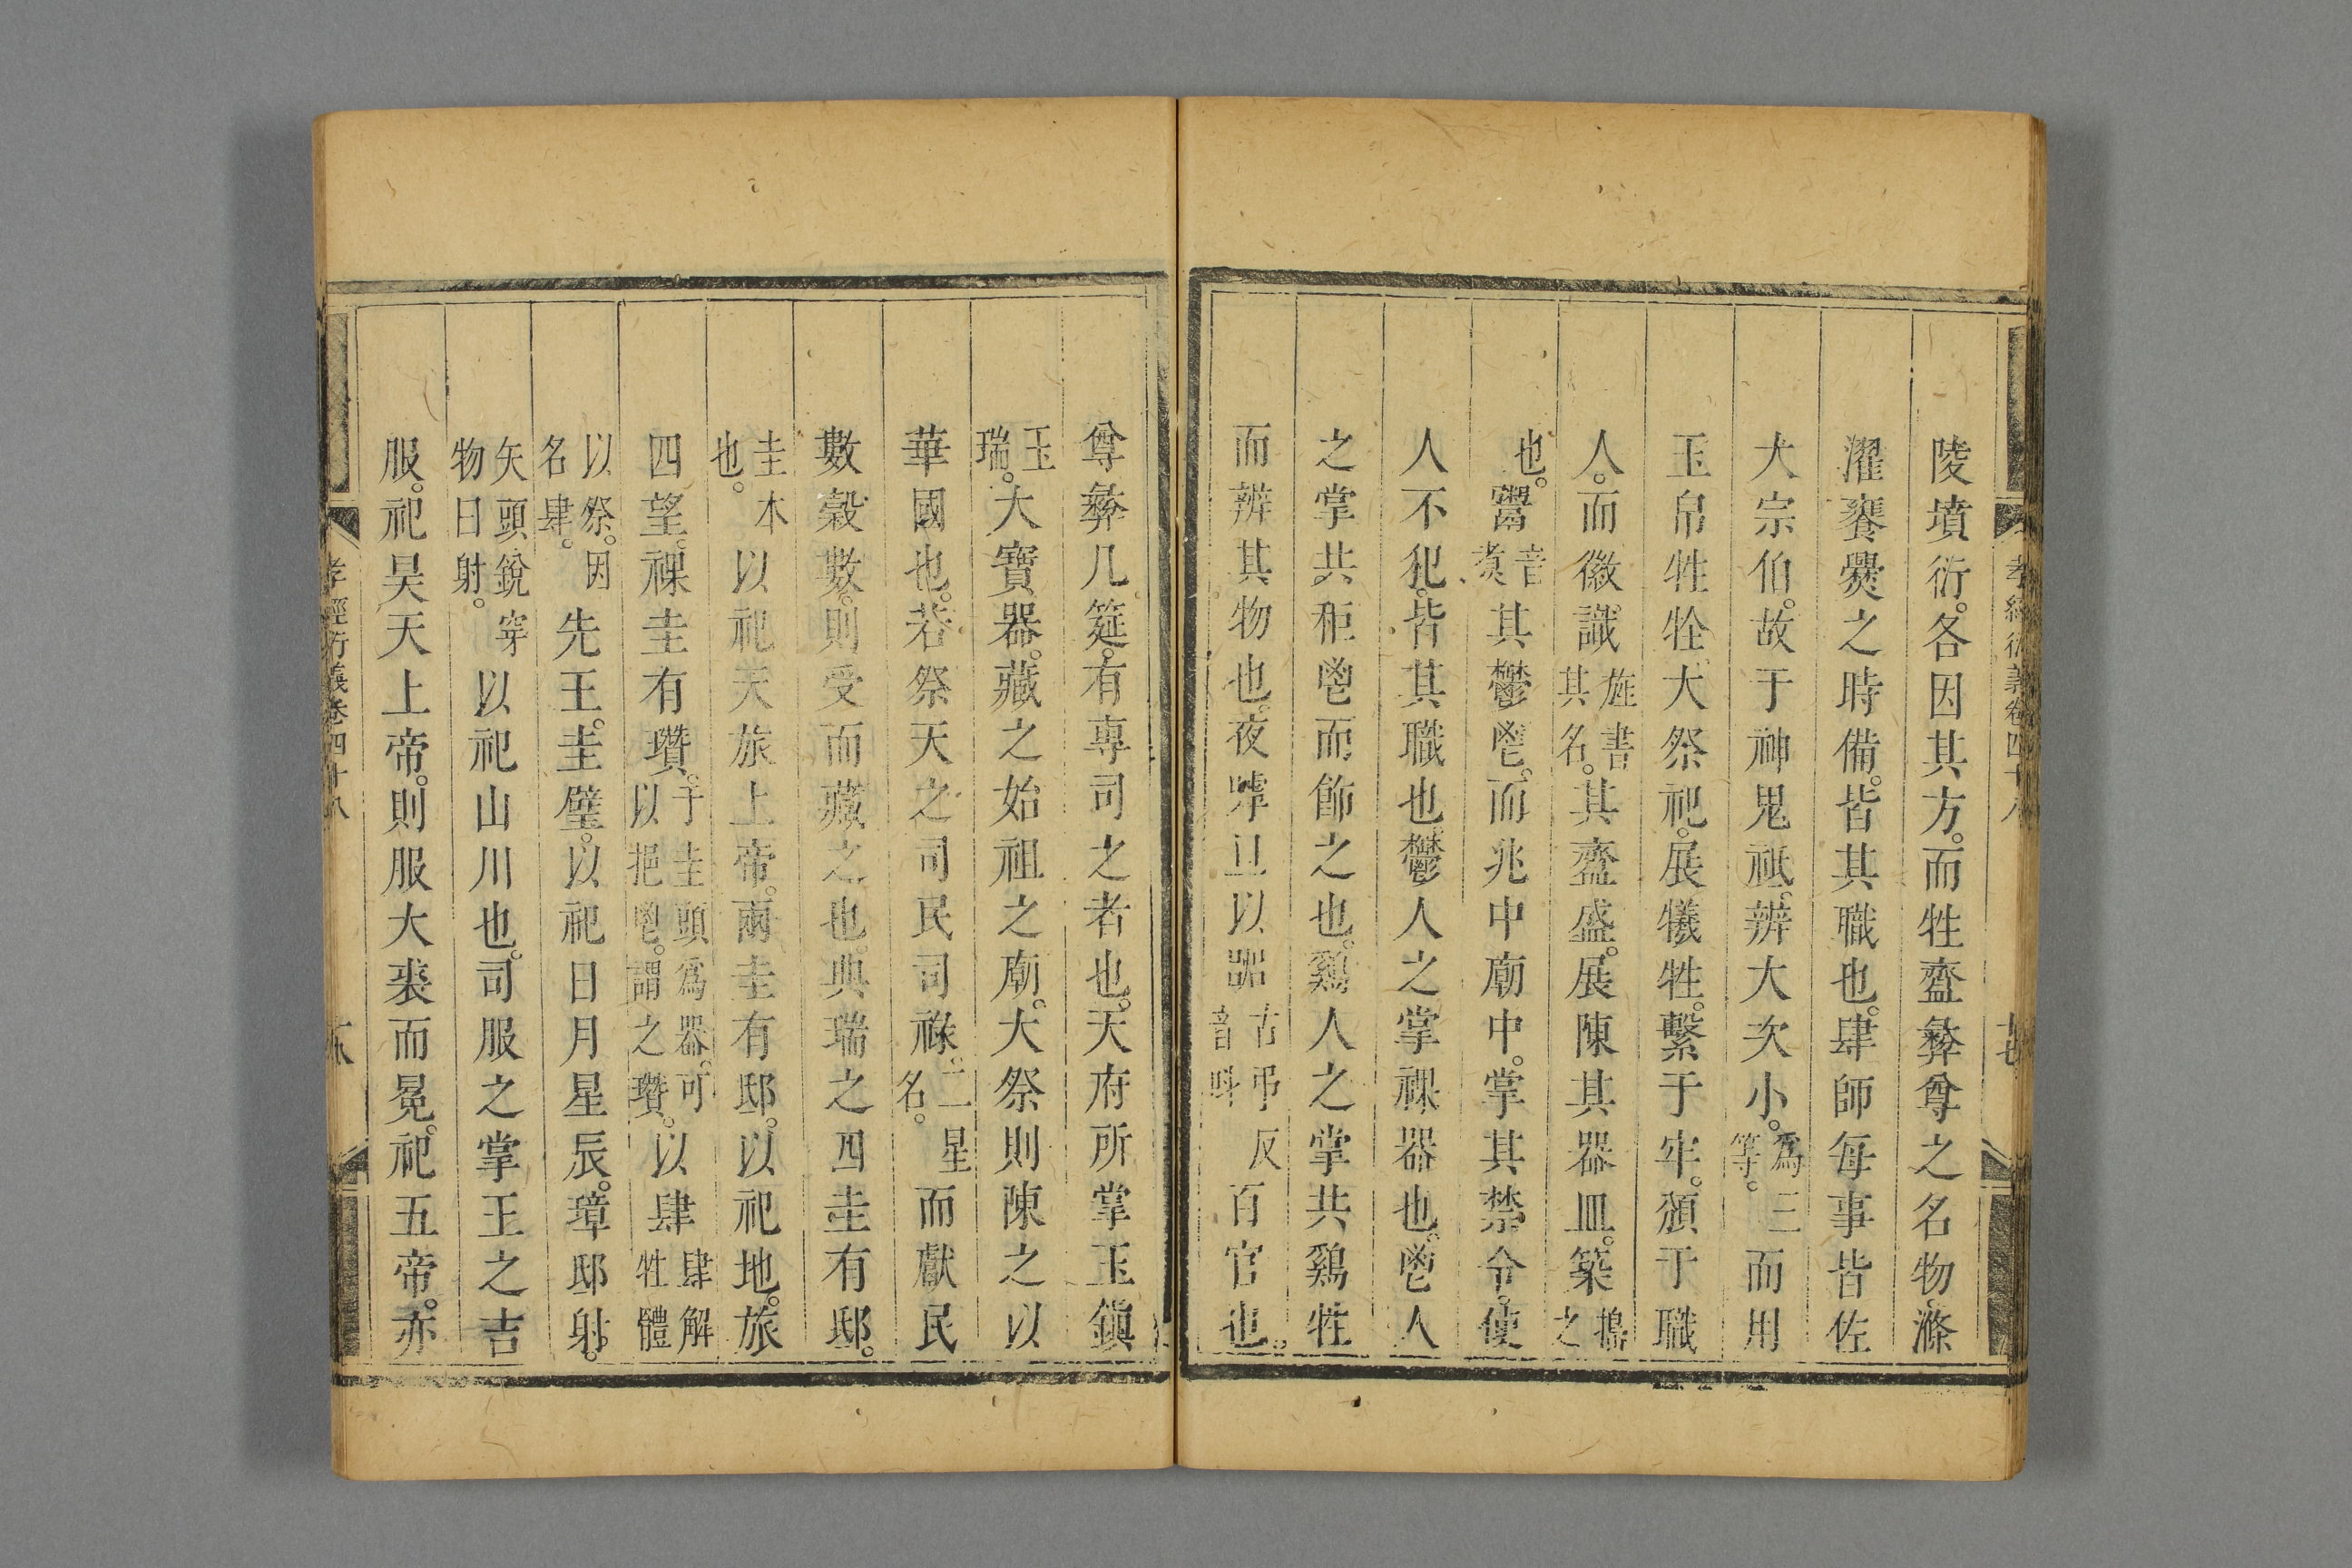 陵墳衍。各因其方。而牲齍彝尊之名物。滌
濯饔爨之時備。皆其職也。肆師每事皆佐
大宗伯。故于神鬼祗。辨大次小。爲三等。而用
玉帛牲牷。大祭祀。展犧牲。繫于牢。頒于職
人。而徽識旌書其名。其齍盛。展陳其器皿。築搗之
也。鬻音煑其鬱鬯。而兆中廟中。掌其禁令。使
人不犯。皆其職也。鬱人之掌祼器也。鬯人
之掌共秬鬯而飾之也。鷄人之掌共鷄牲
而辨其物也。夜嘑旦以嘂古弔反音叫百官也。
尊彝几筵。有專司之者也。天府所掌玉鎭
玉瑞。大寶器。藏之始祖之廟。大祭則陳之以
華國也。若祭天之司民司祿。二星名。而獻民
數穀數。則受而藏之也。典瑞之四圭有邸。
圭本也。以祀天旅上帝。兩圭有邸。以祀地。旅
四望。祼圭有瓚。于圭頭爲器。可以挹鬯。謂之瓚。以肆肆解牲體
以祭。因名肆。先王。圭璧。以祀日月星辰。璋邸射。
矢頭銳穿物曰射。以祀山川也。司服之掌王之吉
服。祀昊天上帝。則服大裘而冕。祀五帝。亦
孝經衍義卷四十八